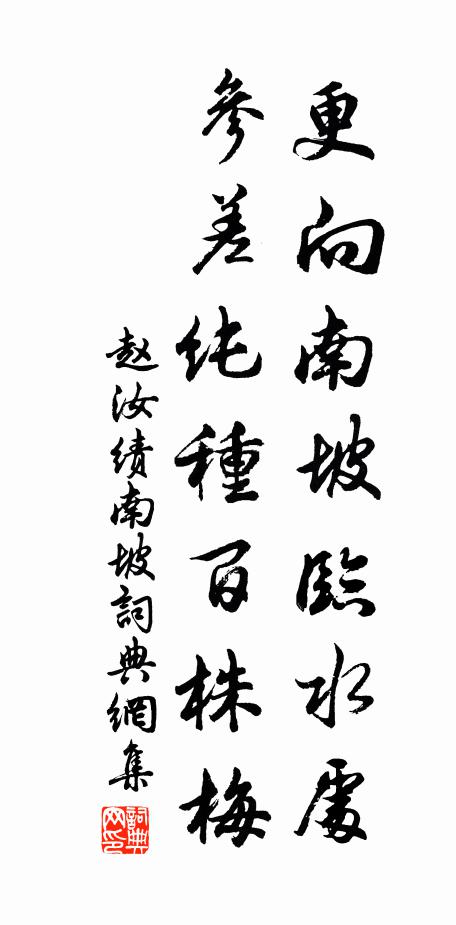 更向南坡臨水處
參差純種百株梅
赵汝績南坡詞典網集
詞典网印